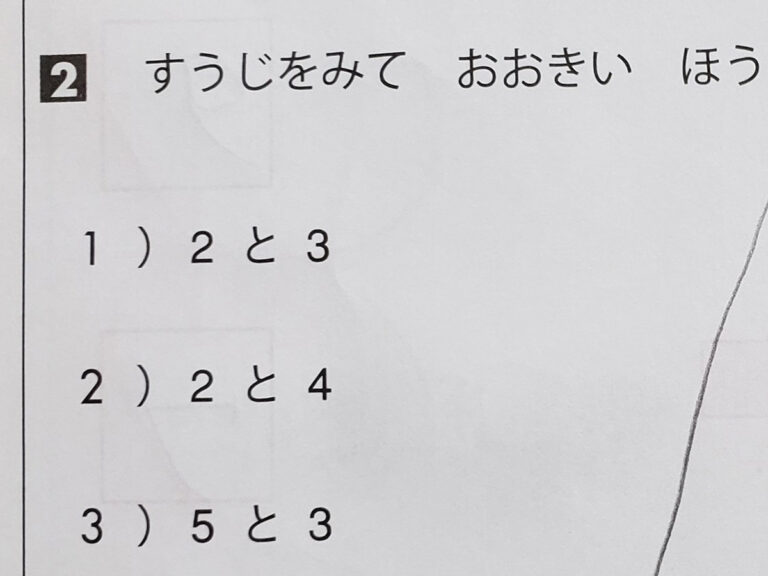 2 すうじをみて おおきい ほう
1）2と3
2）2と4
3）5と3